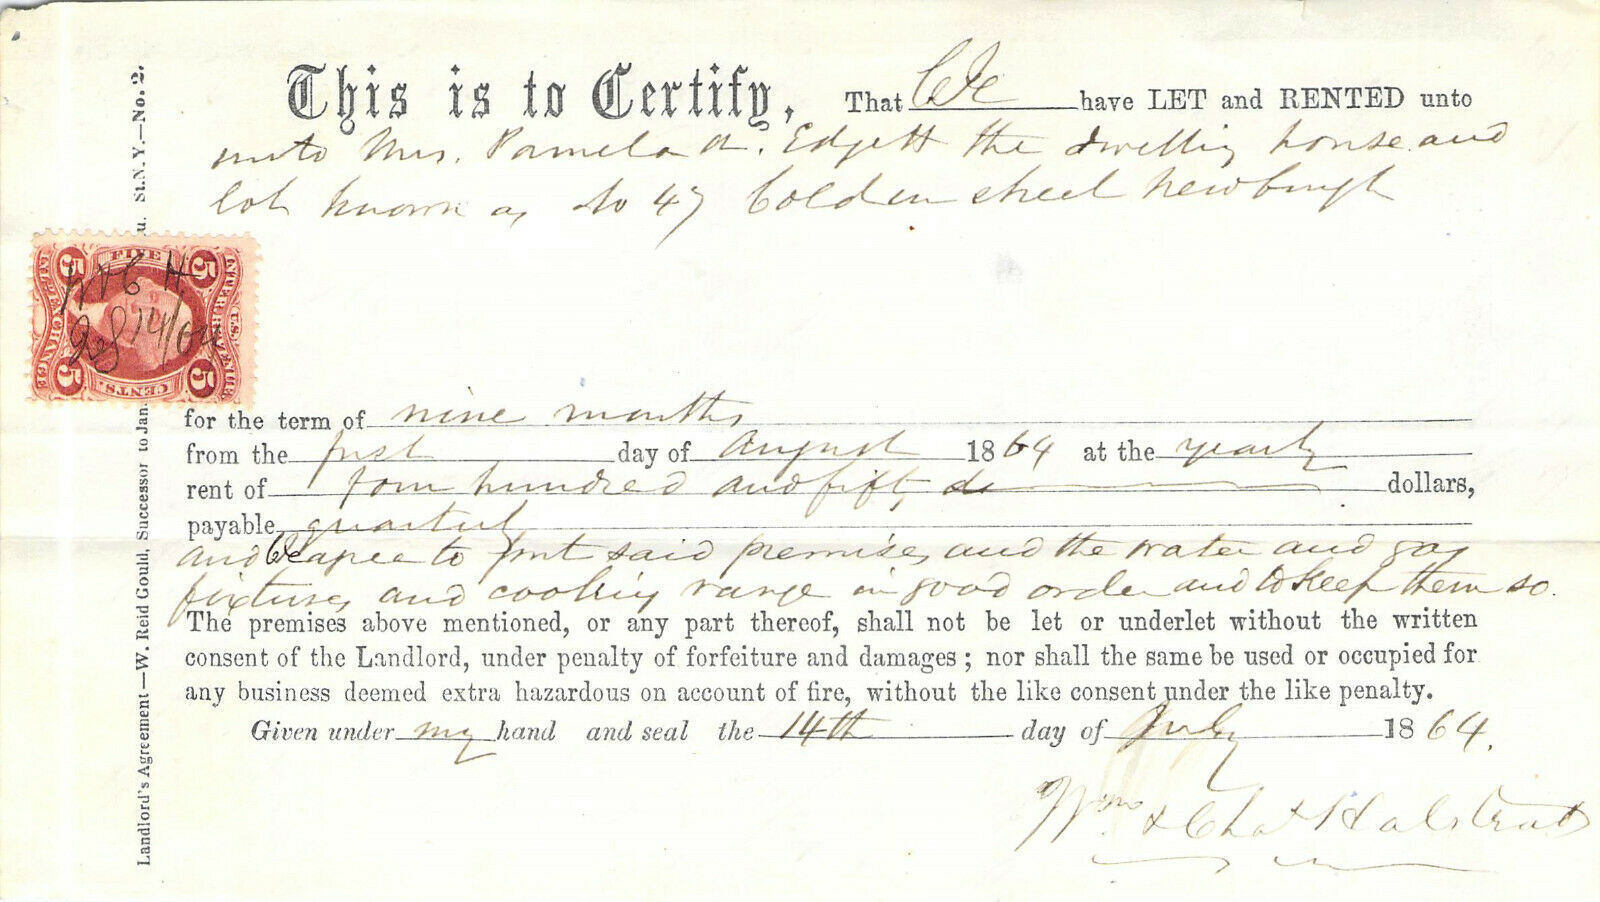 This is to Certify, That We have LET and RENTED unto
unto Mrs. Pamela A. Edgett the dwelling house and
lot known as No 47 Colden street Newburgh
for the term of nine months
from the first day of August 1864 at the yearly
rent of four hundred and fifty dollars,
payable quarterly
and We agree to put said premises and the water and gas
fixtures and cooking range in good order and to keep them so.
The premises above mentioned, or any part thereof, shall not be let or underlet without the written
consent of the Landlord, under penalty of forfeiture and damages; nor shall the same be used or occupied for
any business deemed extra hazardous on account of fire, without the like consent under the like penalty.
Given under my hand and seal the 14th day of July 1864.
Wm & Chas Halstead
Landlord's Agreement—W. Reid Gould, Successor to Jan. St. N.Y.—No. 2.
U.S. INTER. REVENUE
FIVE
5 5
INL'D EXCHANGE
CENTS.
5 5
W & C H.
14/64